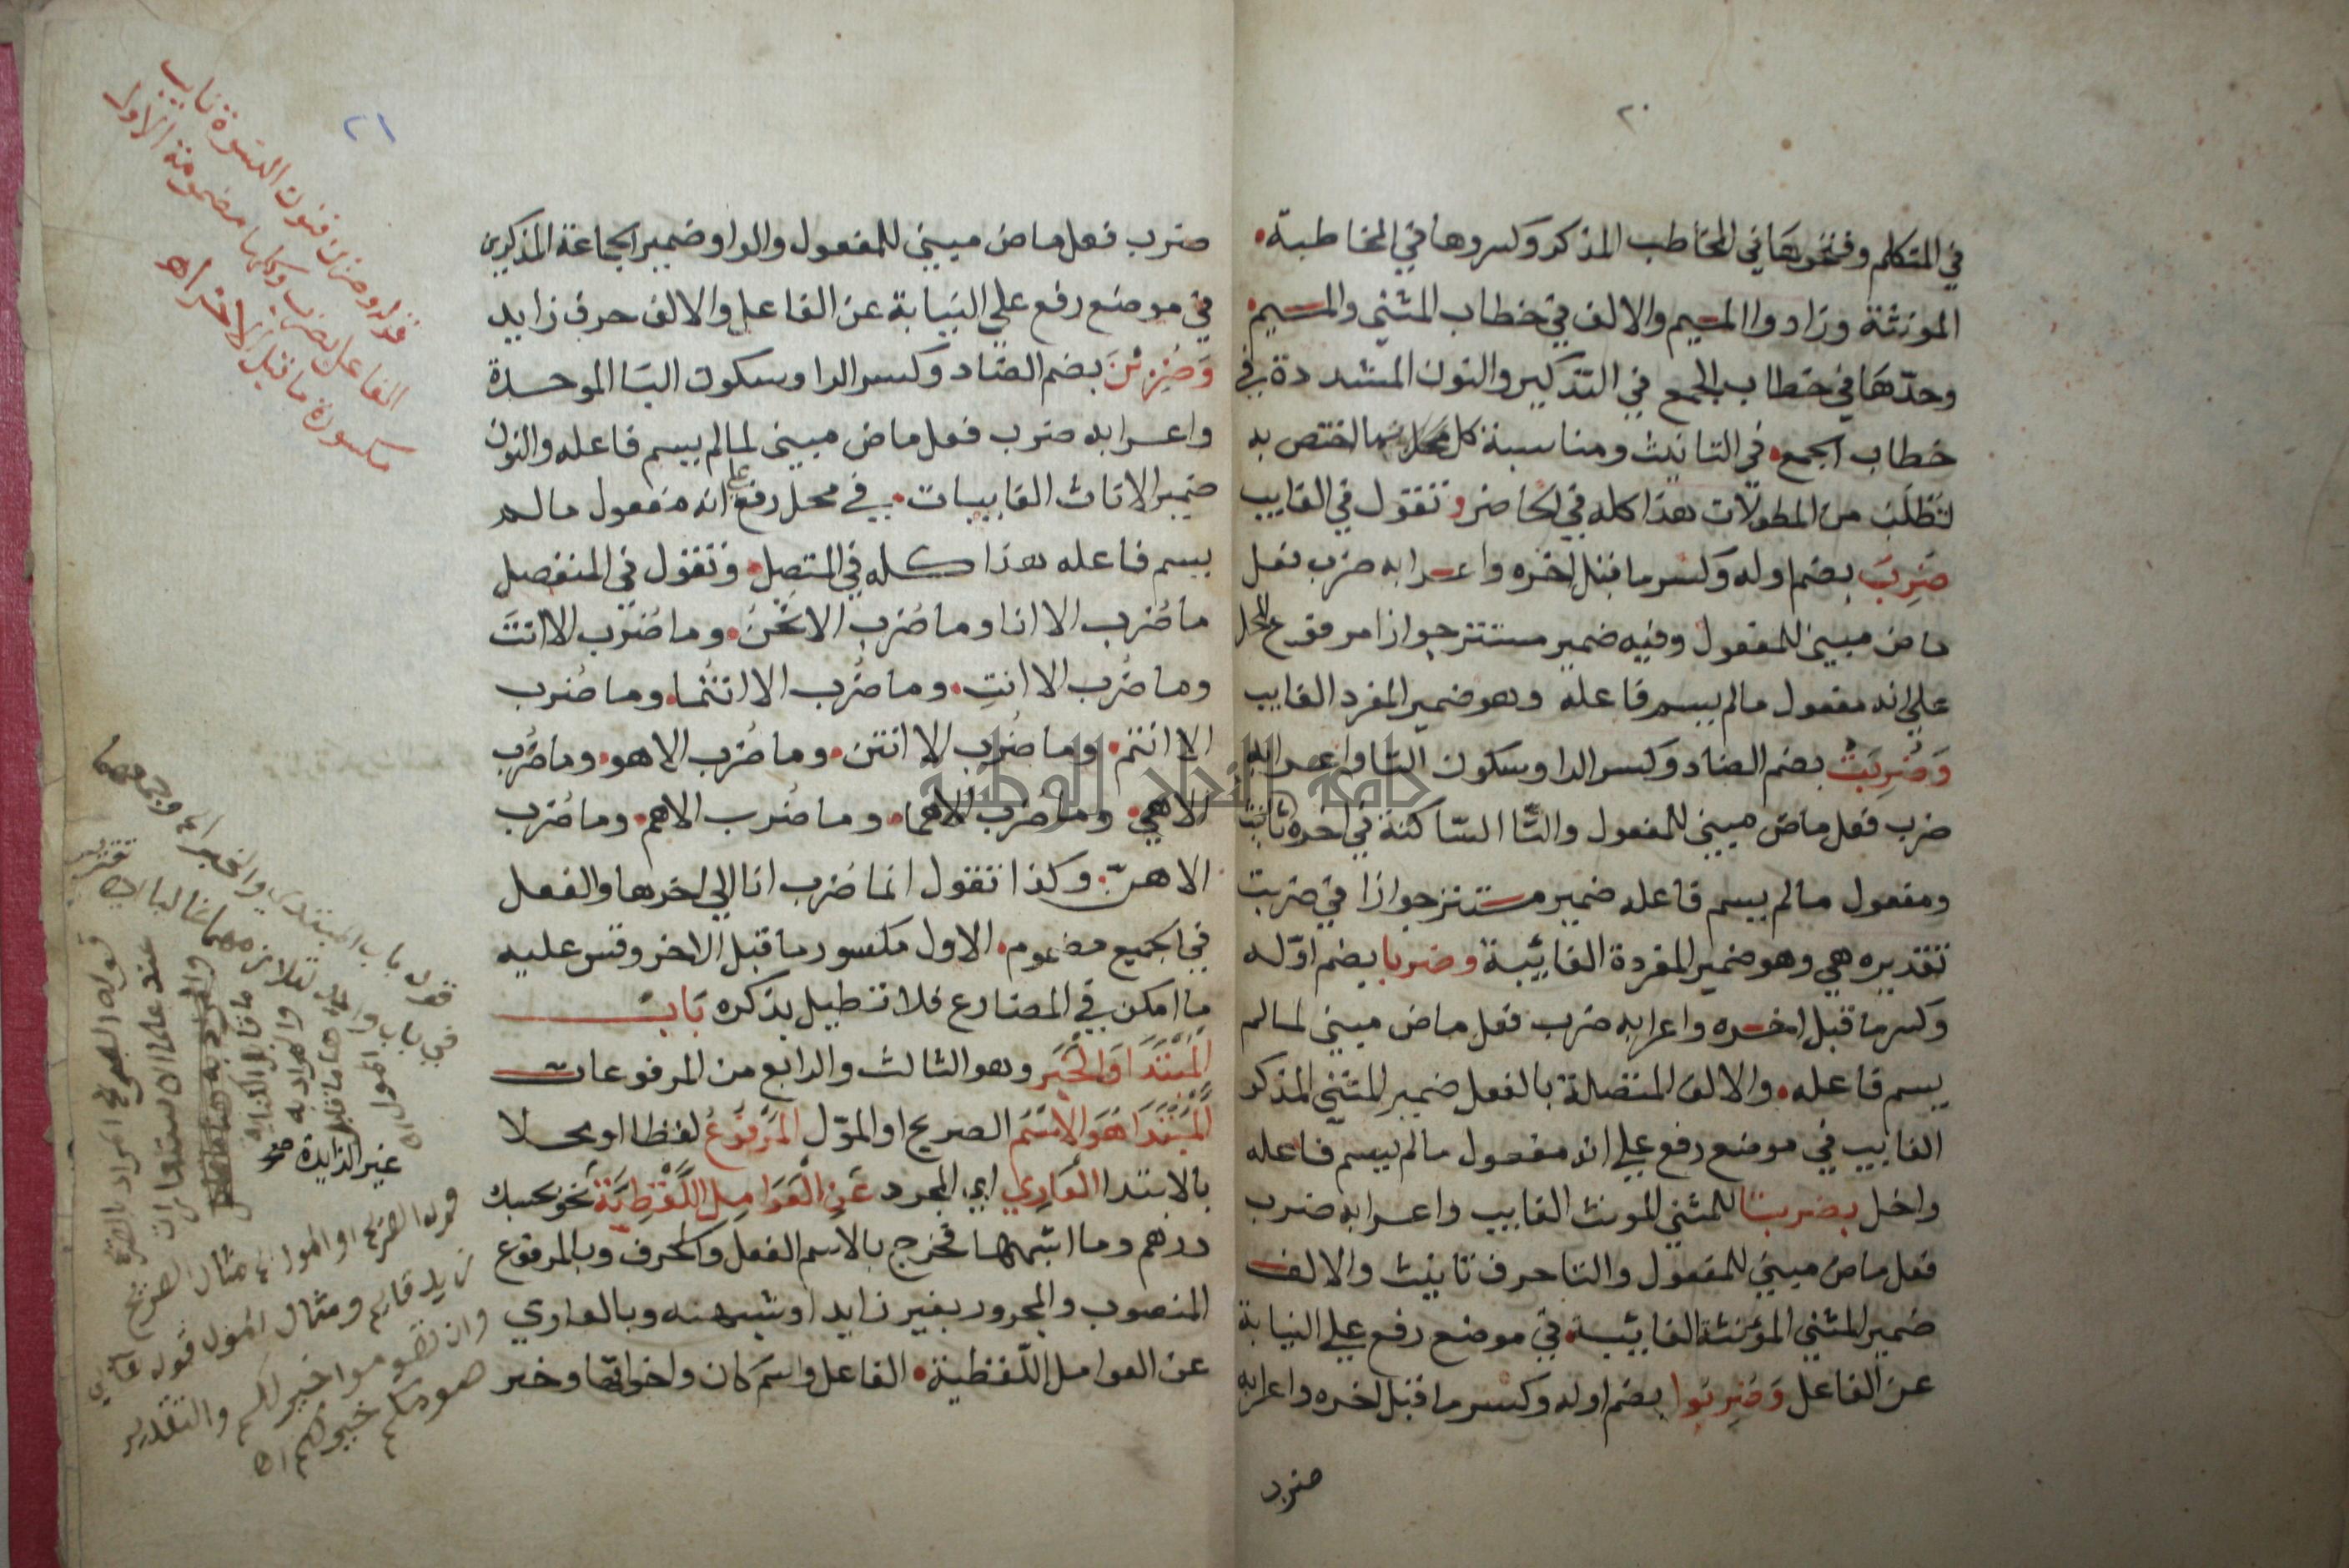 ٢٠
في المتكلم وفتحوها في المخاطب المذكر وكسروها في المخاطبة
المونثة وزادوا الميم والالف في خطاب المثني والميم
وحدها في خطاب الجمع في التذكير والنون المشددة في
خطاب الجمع في التانيث ومناسبة كل محل بما اختص به
تطلب من المطولات هذا كله في الحاضر وتقول في الغايب
ضُرِبَ بضم اوله وكسر ما قبل اخره واعرابه ضرب فعل
ماض مبني للمفعول وفيه ضمير مستتر جوازا مرفوع المحل
علي انه مفعول مالم يسم فاعله وهو ضمير المفرد الغايب
وَضُرِبَتْ بضم الضاد وكسر الرا وسكون التا واعرابه
ضرب فعل ماض مبني للمفعول والتا الساكنة في اخره تانيث
ومفعول مالم يسم فاعله ضمير مستتر جوازا في ضربت
تقديره هي وهو ضمير المفردة الغائبة وضربا بضم اوّله
وكسر ما قبل اخره واعرابه ضرب فعل ماض مبني لمالم
يسم فاعله والالف المتصلة بالفعل ضمير المثني المذكر
الغايب في موضع رفع علي انه مفعول مالم يسم فاعله
واخل بضربتا للمثني المونث الغايب واعرابه ضرب
فعل ماض مبني للمفعول والتا حرف تانيث والالف
ضمير المثني المؤنثة الغائبة في موضع رفع علي النيابة
عن الفاعل وَضُرِبُوا بضم اوله وكسر ما قبل اخره واعرابه
ضرب
٢١
ضرب فعل ماض مبني للمفعول والواو ضمير الجماعة المذكرين
في موضع رفع علي النيابة عن الفاعل والالف حرف زايد
وَضُرِبْنَ بضم الضاد وكسر الرا وسكون البا الموحدة
واعرابه ضرب فعل ماض مبني لمالم يسم فاعله والنون
ضمير الاناث الغايبات في محل رفع علي انه مفعول مالم
يسم فاعله هذا كله في المتصل وتقول في المنفصل
ما ضُرب الا انا وما ضُرب الا نحنُ وما ضُرب الا انتَ
وما ضُرب الا انتِ وما ضُرب الا انتُما وما ضُرب
الا انتم وما ضُرب الا انتن وما ضُرب الا هو وما ضُرب
الا هي وما ضُرب الا هما وما ضُرب الا هم وما ضُرب
الا هنّ وكذا تقول انما ضُرب انا الي اخرها والفعل
في الجميع مضموم الاول مكسور ما قبل الاخر وقس عليه
ما امكن في المضارع فلا تطيل بذكره بَابُ
الْمُبْتَدَا وَالْخَبَرِ وهو الثالث والرابع من المرفوعات
الْمُبْتَدَا هُوَ الْاسْمُ الصريح او الموّل الْمَرْفُوعُ لفظا او محلا
بالابتدا الْعَارِي اي المجرد عَنِ الْعَوَامِلِ اللَّفْظِيَّةِ نحو بحسبك
درهم وما اشبهها فخرج بالاسم الفعل والحرف وبالمرفوع
المنصوب والمجرور بغير زايد او شبهه وبالعاري
عن العوامل اللّفظية الفاعل واسم كان واخواتها وخبر
قوله وضربن فنون النسوة نايب
الفاعل لضرب وكلها مضمومة الاول
مكسورة ما قبل الاخر اه
قوله باب المبتدا والخبر
غير الزايدة
قوله الصريح او الموول مثال الصريح
زيد قائم ومثال الموول قوله تعالي
وان تصوموا خير لكم والتقدير
صومكم خير لكم اه